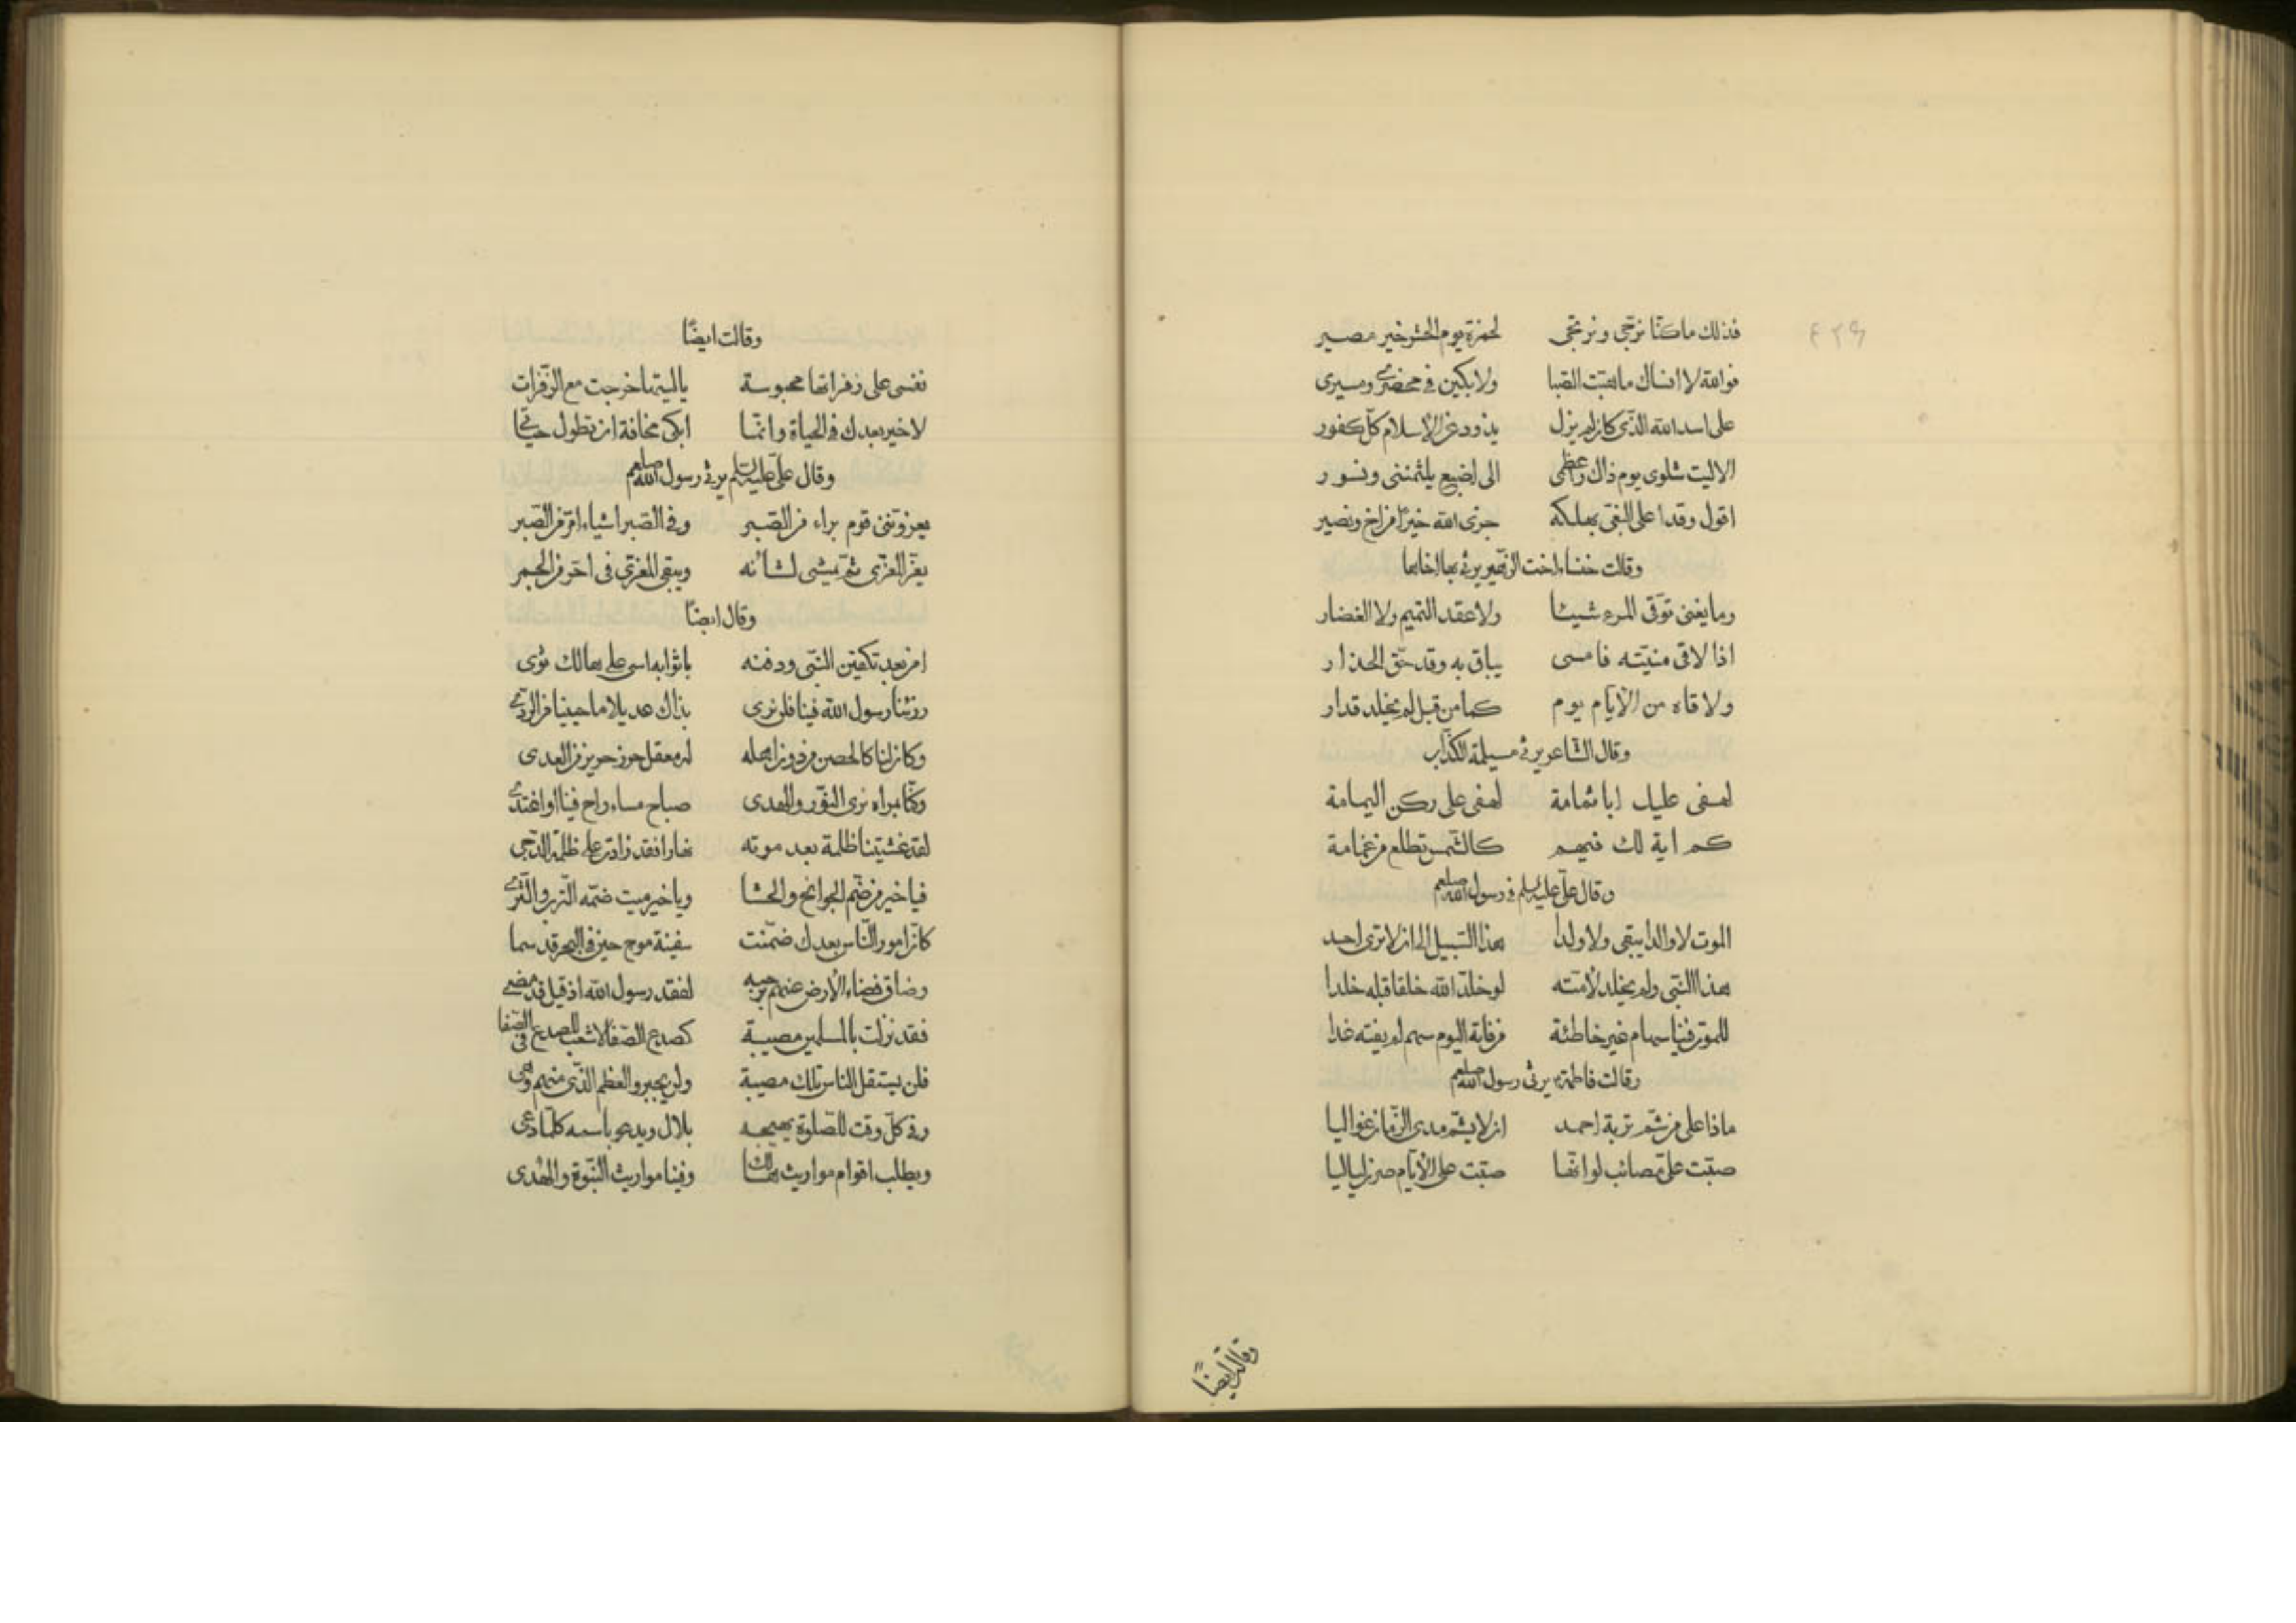 فذلك ماكنّا نرجّى ونرتجى لحمزة يوم الحشر خير مصير
فوالله لا انساك ماهبّت الصّبا ولابكين فى محضرى ومسيرى
على اسد الله الذّى كان لم يزل يذود عن الاسلام كلّ كفور
الا ليت شلوى يوم ذاك واعظمى الى اضبع يلثمننى ونسور
اقول وقد اعلى النّعى بهلكه جزى الله خيرًا من اخ ونصير
وقالت خنساء اخت الزّهير يرثى بها اخاها
وما يغنى توقّى المرء شيئا ولا عقد التّميم ولا الغضار
اذا لاقى منيّته فامسى يباق به وقد حقّ الحذار
ولاقاه من الايّام يوم كما من قبل لم يخلد قدار
وقال الشّاعر يرثى مسيلمة الكذّاب
لهفى عليك ابا ثمامة لهفى على ركن اليمامة
كم اية لك فيهم كالشّمس تطلع من غمامة
وقال علىّ عليه السلم فى رسول الله صلعم
الموت لا والدا يبقى ولا ولدا هذا السّبيل الى ان لا ترى احد
هذا النّبى ولم يخلد لامّته لو خلّد الله خلقا قبله خلدا
للموت فينا سهام غير خاطئة من فاته اليوم سهم لم يفته غدا
وقالت فاطمة يرثى رسول الله صلعم
ماذا على من شمّ تربة احمد ان لا يشمّ مدى الزّمان غواليا
صبّت علىّ مصائب لو انّها صبّت على الايّام صرن لياليا
وقالت ايضًا
وقالت ايضًا
نفسى على زفراتها محبوسة ياليتها خرجت مع الزّفرات
لا خير بعدك فى الحياة وانّما ابكى مخافة ان تطول حياتى
وقال علىّ عليه السلم يرثى رسول الله صلعم
يعزوننى قوم براء من الصّبر وفى الصّبر اشياء امرّ من الصّبر
يعزّ المعزّى ثمّ يمشى لشأنه ويبقى المعزّى فى احرّ من الجمر
وقال ايضًا
امن بعد تكفين النّبى ودفنه باثوابه اسى على هالك ثوى
رزئنا رسول الله فينا فلن نرى بذاك عديلا ما حيينا من الردّى
وكان لنا كالحصن من دون اهله له معقل حرز حريز من العدى
وكنّا بمراه نرى النّور والهدى صباح مساء راح فينا او اغتدى
لقد غشيتنا ظلمة بعد موته نهارا فقد زادت على ظلمة الدّجى
فيا خير من ضمّ الجوانح والحشا ويا خير ميت ضمّه التّرب والثّرى
كانّ امور النّاس بعدك ضمّنت سفينة موج حين فى البحر قد سما
وضاق فضاء الارض عنهم برحبه لفقد رسول الله اذ قيل قد مضى
فقد نزلت بالمسلمين مصيبة كصدع الصّفا لا شعب للصدع فى الصّفا
فلن يستقل الناس تلك مصيبة ولن يجبر والعظم الذّى منهم وهى
وفى كلّ وقت للصّلوة يهيجه بلال ويدعو باسمه كلّما دعى
ويطلب اقوام مواريث هالك وفينا مواريث النّبوة والهدى